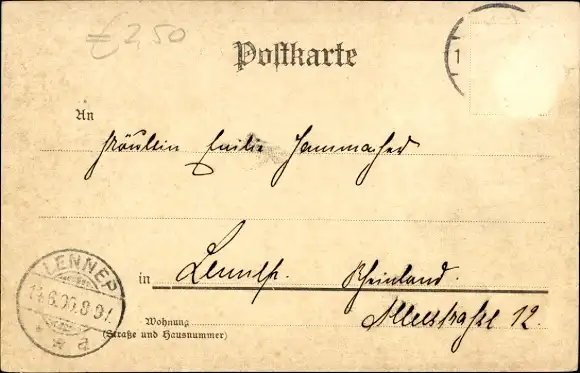 € 2,50
Postkarte
1
An
Fräulein Emilie Hammacher
LENNEP
14.6.00.8-9V
* a
in Lennep. Rheinland.
Alleestraße 12.
Wohnung
(Straße und Hausnummer)